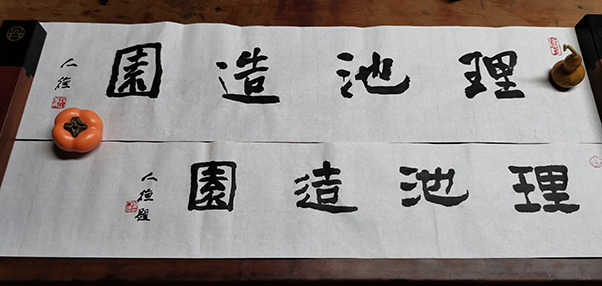 理池造園
人德
理池造園
人德題